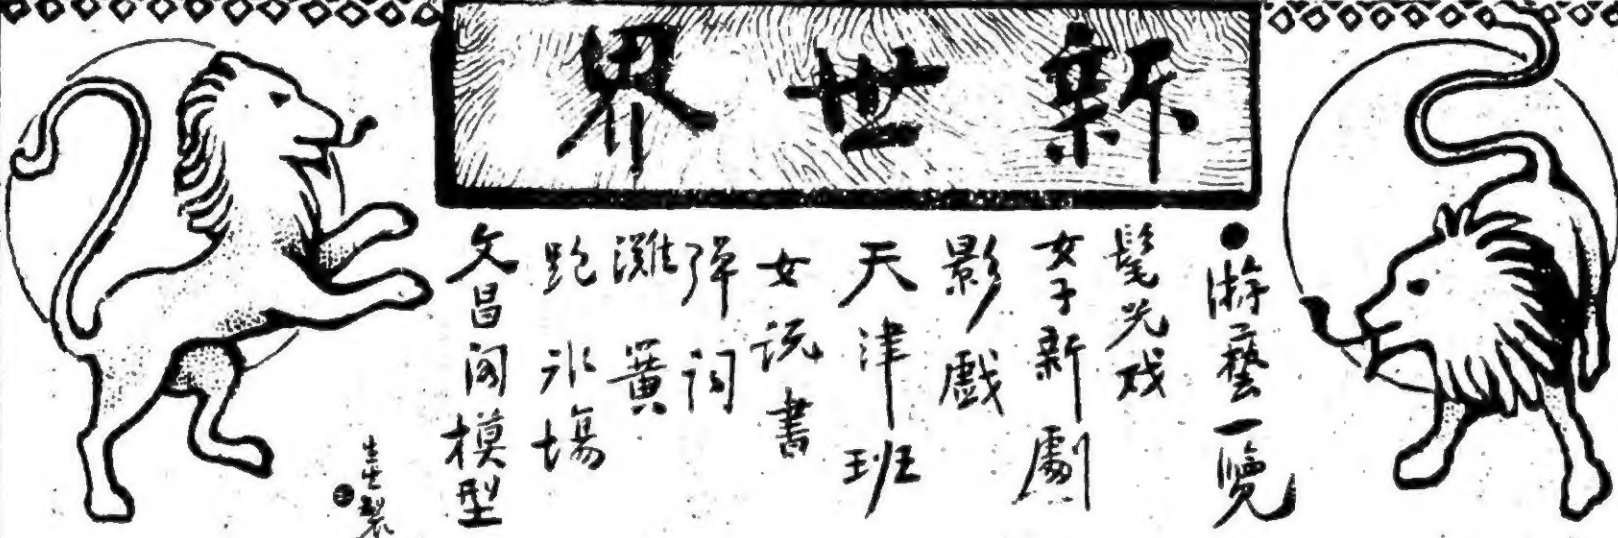 新世界
●游藝一覽
髦兒戏
女子新劇
影戲
天津班
女説書
弹词
灘簧
跑冰場
文昌阁模型